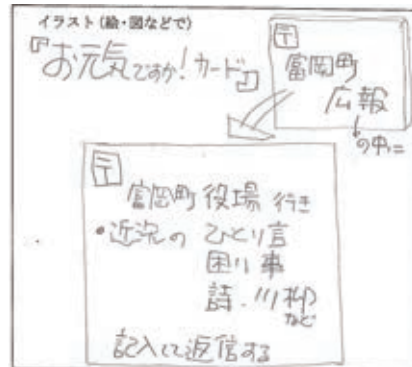 イラスト(絵・図などで)
『お元気ですか!カード』
〒
富岡町
広報
の中に
〒
富岡町役場 行き
・近況の ひとり言
困り事
詩・川柳
など
記入して返信する